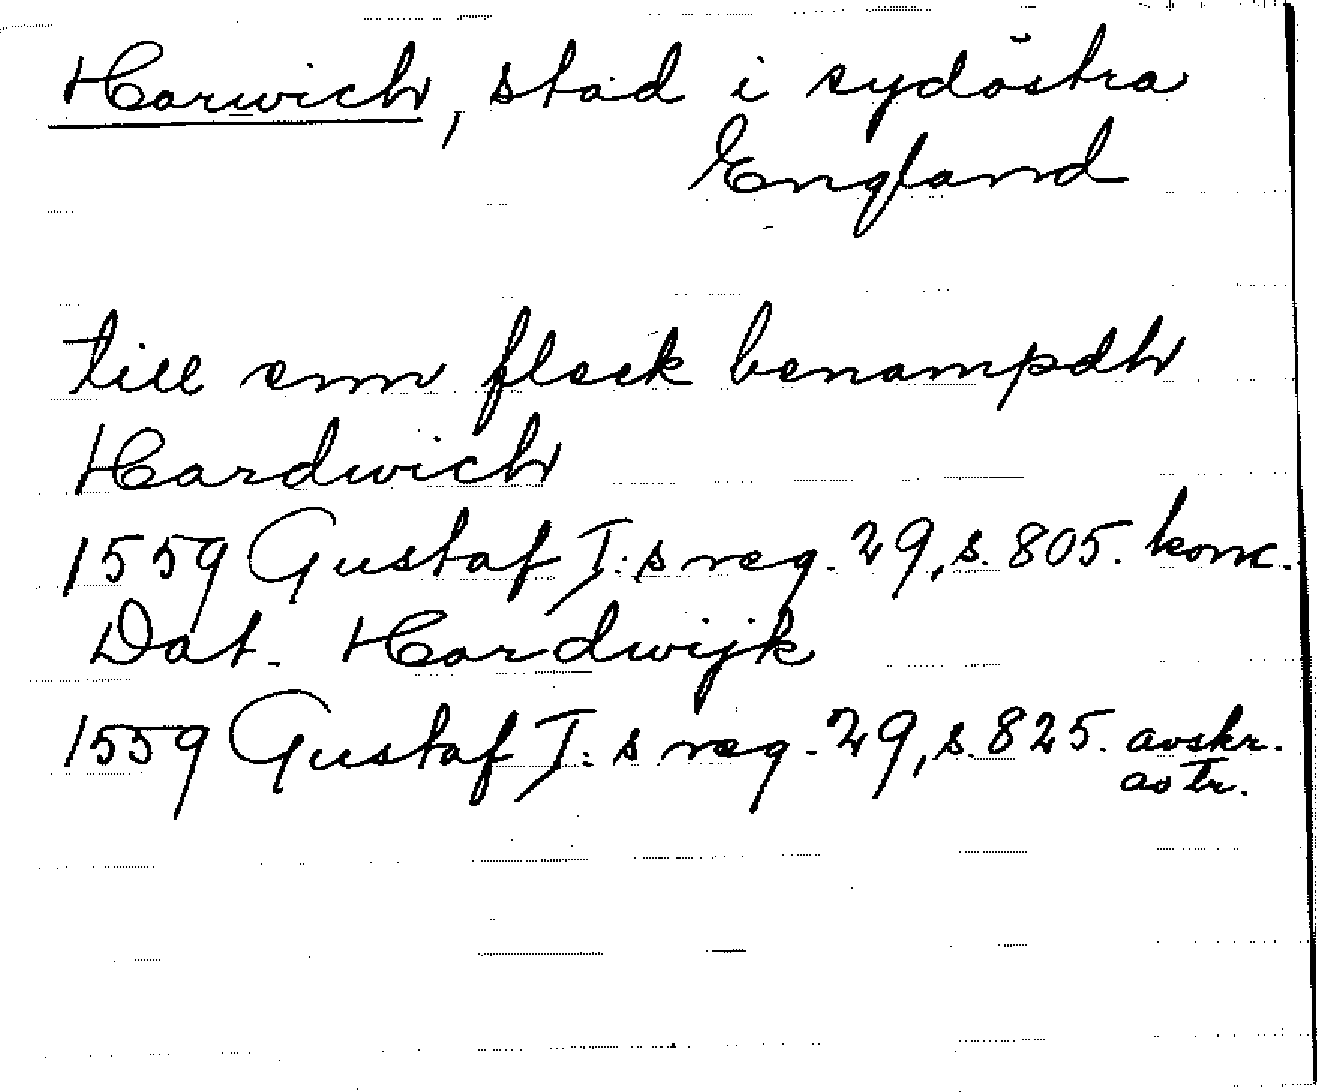 Harwich, stad i sydöstra
England
till enn fleck benampdh
Hardwich
1559 Gustaf I:s reg. 29, s. 805. konc.
Dat. Hardwijk
1559 Gustaf I:s reg. 29, s. 825. avskr.
av tr.